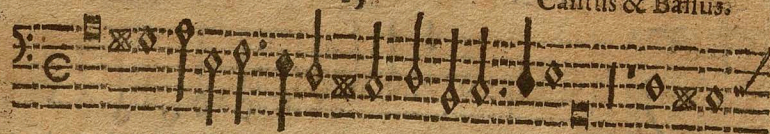 Cantus & Bassus.